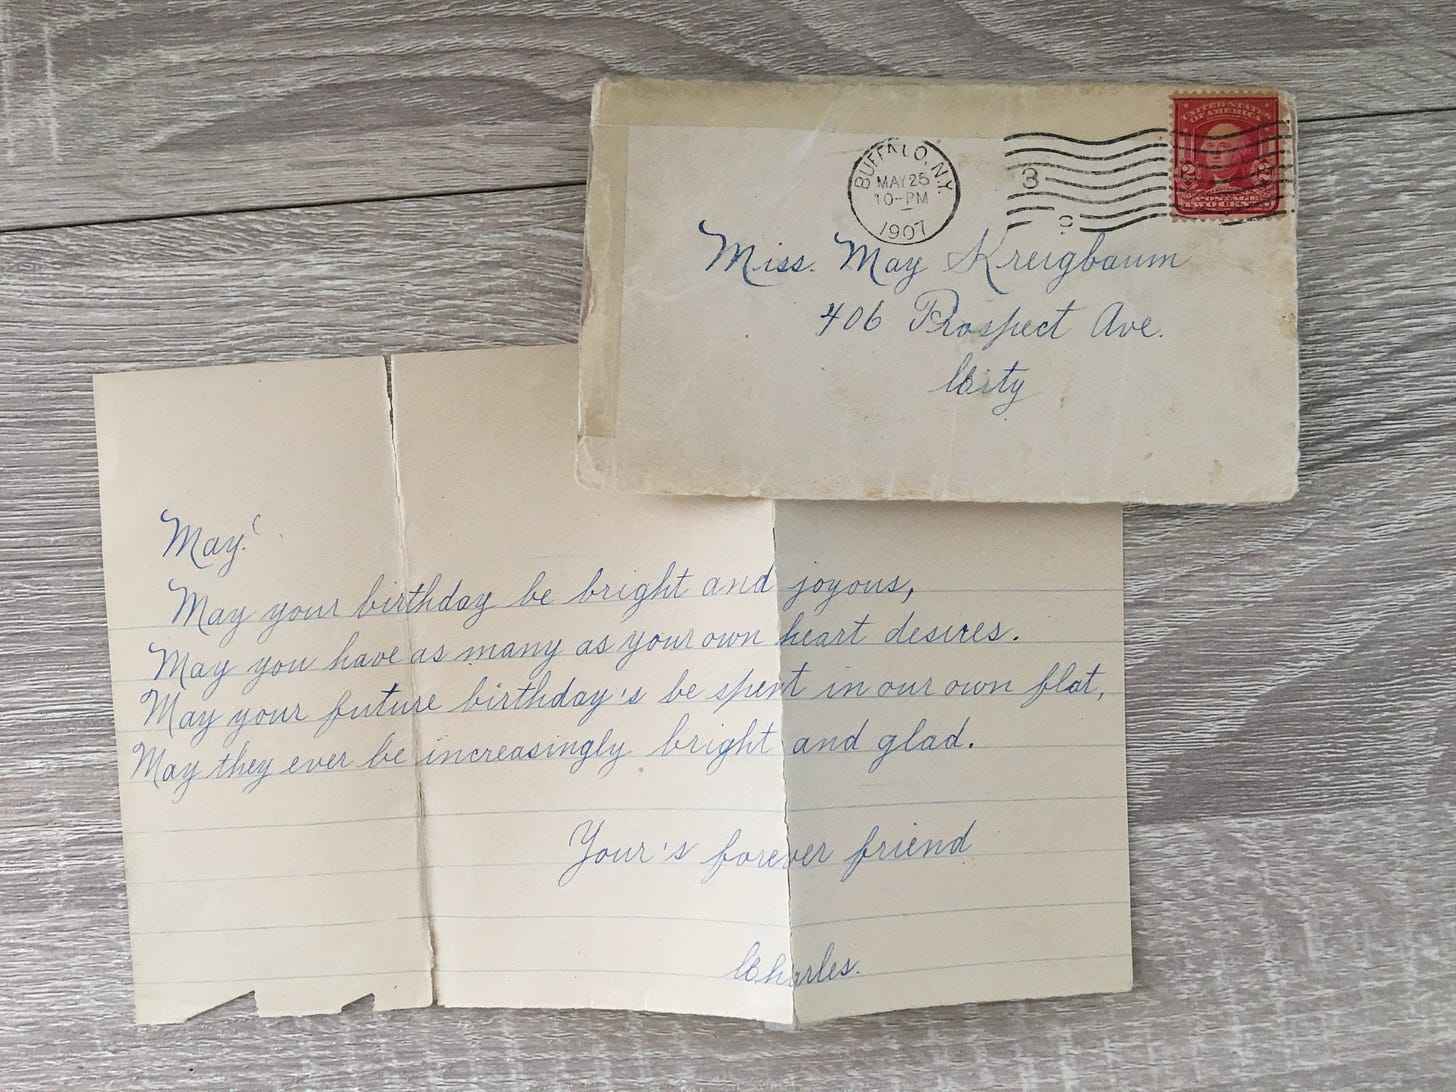 BUFFALO, N.Y.
MAY 25
10-PM
1907
3
C
UNITED STATES
OF AMERICA
2 2
POSTAGE
TWO CENTS
Miss. May Kreigbaum
406 Prospect Ave.
City
May!
May your birthday be bright and joyous,
May you have as many as your own heart desires.
May your future birthday's be spent in our own flat,
May they ever be increasingly bright and glad.
Your's forever friend
Charles.